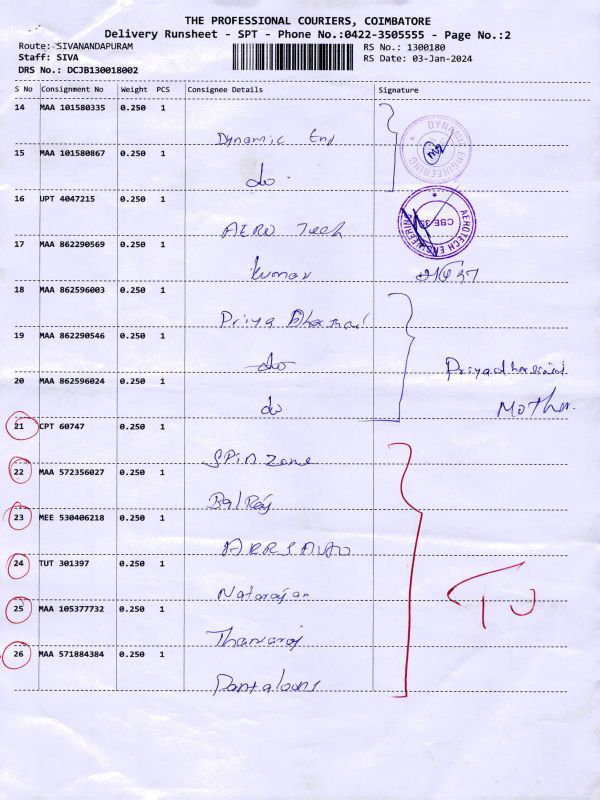 THE PROFESSIONAL COURIERS, COIMBATORE
Delivery Runsheet - SPT - Phone No.:0422-3505555 - Page No.:2
Route: SIVANANDAPURAM
RS No.: 1300180
Staff: SIVA
RS Date: 03-Jan-2024
DRS No.: DCJB130018002
S No Consignment No Weight PCS Consignee Details Signature
14 MAA 101580335 0.250 1
Dynamic
DYNAMIC ENGINEERING
15 MAA 101580867 0.250 1
do
16 UPT 4047215 0.250 1
AERO Tech
AEROTECH CBE-35
17 MAA 862290569 0.250 1
Kumar
18 MAA 862596003 0.250 1
Priya
19 MAA 862290546 0.250 1
do
20 MAA 862596024 0.250 1
do
Mother.
21 CPT 60747 0.250 1
SPin Zone
22 MAA 572356027 0.250 1
BalRaj
23 MEE 530406218 0.250 1
ARRS Auto
24 TUT 301397 0.250 1
Natarajan
TU
25 MAA 105377732 0.250 1
Thanaraj
26 MAA 571884384 0.250 1
Pantaloons